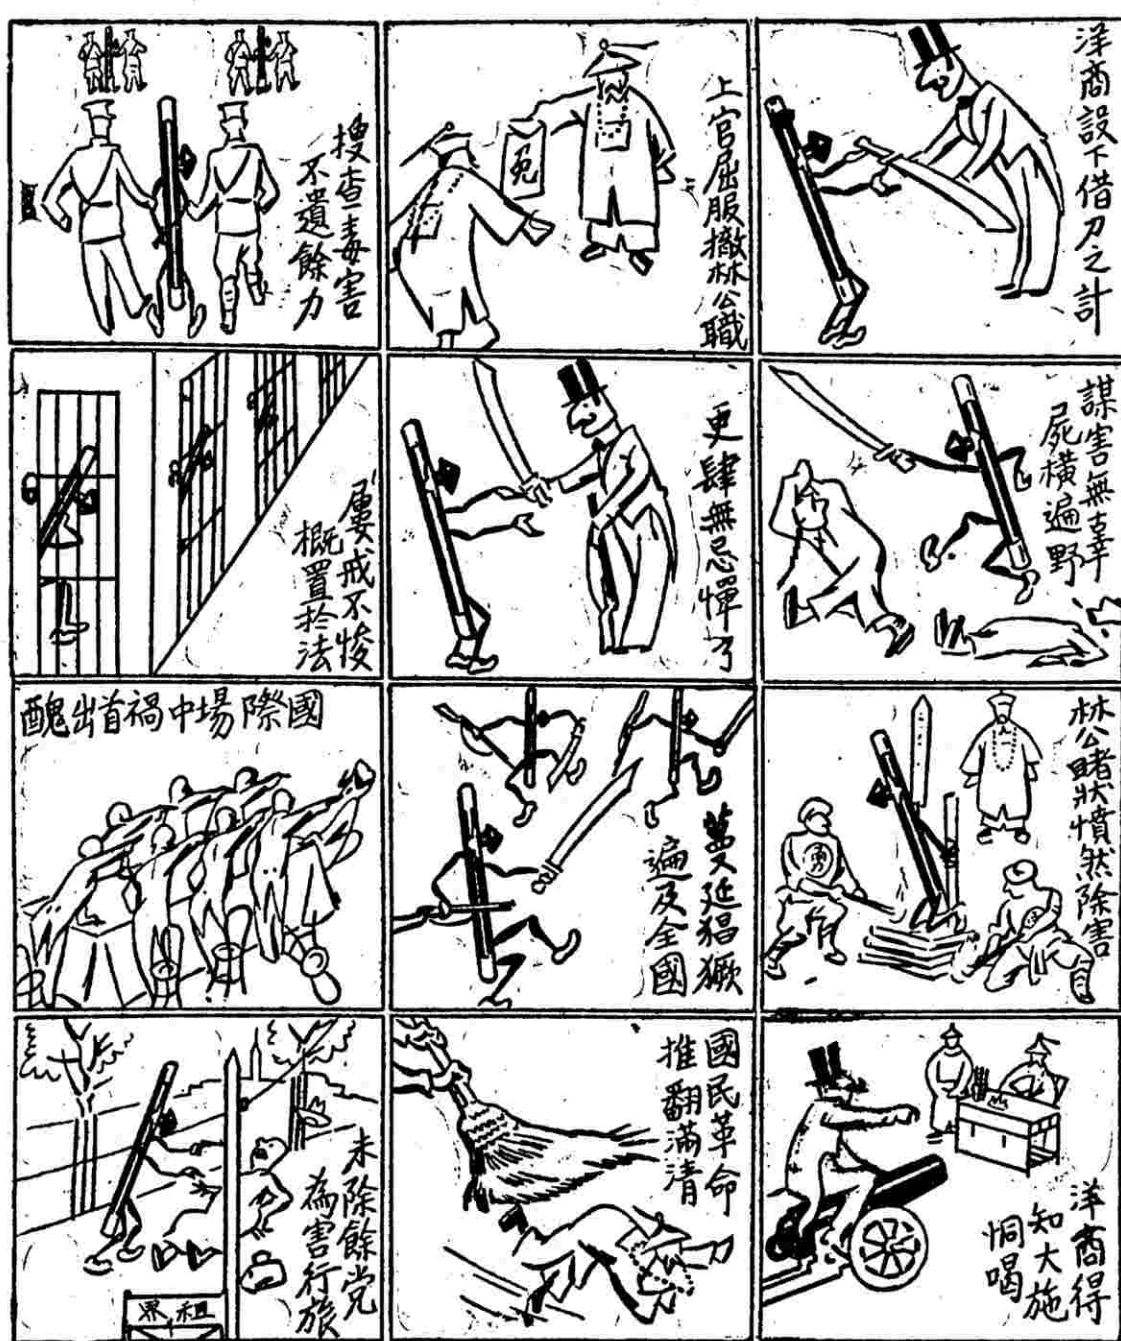 洋商設下借刀之計
謀害無辜
屍橫遍野
林公睹狀憤然除害
勇
洋商得
知大施
恫喝
上官屈服撤林公職
免
更肆無忌憚了
蔓延猖獗
遍及全國
國民革命
推翻滿清
搜查毒害
不遺餘力
屢戒不悛
概置於法
國際場中禍首出醜
未除餘党
為害行旅
租界